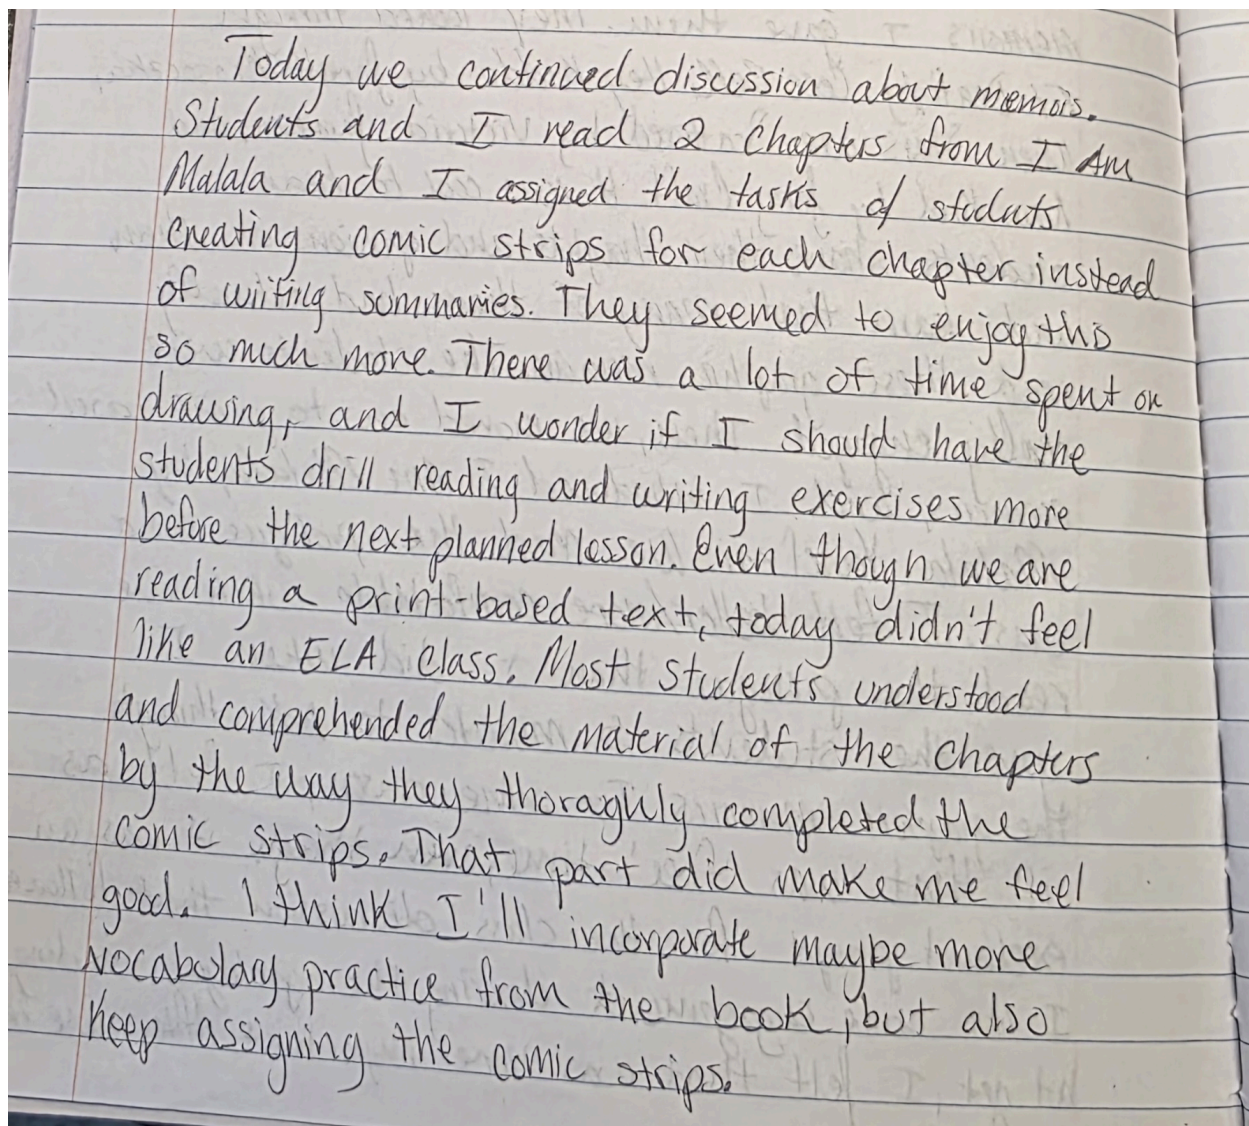 Today we continued discussion about memois.
Students and I read 2 Chapters from I Am
Malala and I assigned the tasks of students
creating comic strips for each chapter instead
of writing summaries. They seemed to enjoy this
so much more. There was a lot of time spent on
drawing, and I wonder if I should have the
students drill reading and writing exercises more
before the next planned lesson. Even though we are
reading a print-based text, today didn't feel
like an ELA class. Most students understood
and comprehended the material of the chapters
by the way they thoraghly completed the
comic strips. That part did make me feel
good. I think I'll incorporate maybe more
vocabulary practice from the book, but also
keep assigning the comic strips.